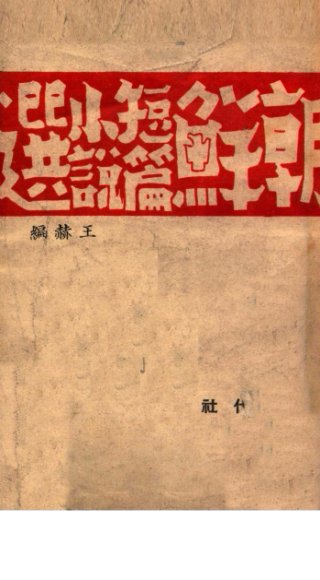 朝鮮短篇小說選
王赫編
代社